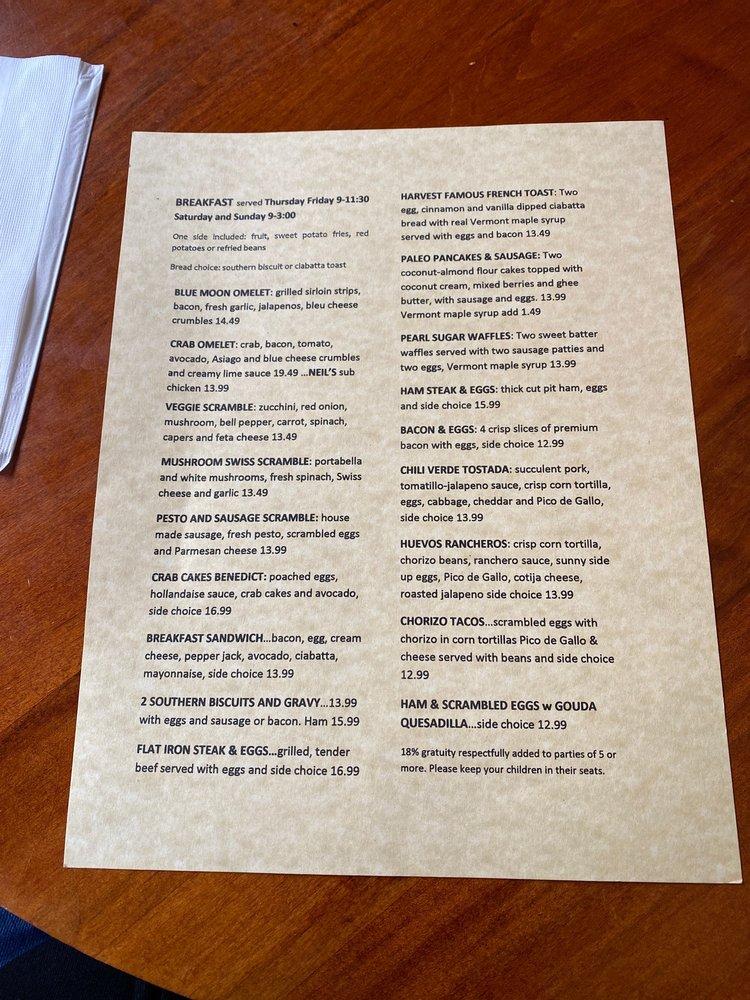 BREAKFAST served Thursday Friday 9-11:30
Saturday and Sunday 9-3:00
One side included: fruit, sweet potato fries, red
potatoes or refried beans
Bread choice: southern biscuit or ciabatta toast
BLUE MOON OMELET: grilled sirloin strips,
bacon, fresh garlic, jalapenos, bleu cheese
crumbles 14.49
CRAB OMELET: crab, bacon, tomato,
avocado, Asiago and blue cheese crumbles
and creamy lime sauce 19.49 ...NEIL'S sub
chicken 13.99
VEGGIE SCRAMBLE: zucchini, red onion,
mushroom, bell pepper, carrot, spinach,
capers and feta cheese 13.49
MUSHROOM SWISS SCRAMBLE: portabella
and white mushrooms, fresh spinach, Swiss
cheese and garlic 13.49
PESTO AND SAUSAGE SCRAMBLE: house
made sausage, fresh pesto, scrambled eggs
and Parmesan cheese 13.99
CRAB CAKES BENEDICT: poached eggs,
hollandaise sauce, crab cakes and avocado,
side choice 16.99
BREAKFAST SANDWICH...bacon, egg, cream
cheese, pepper jack, avocado, ciabatta,
mayonnaise, side choice 13.99
2 SOUTHERN BISCUITS AND GRAVY...13.99
with eggs and sausage or bacon. Ham 15.99
FLAT IRON STEAK & EGGS...grilled, tender
beef served with eggs and side choice 16.99
HARVEST FAMOUS FRENCH TOAST: Two
egg, cinnamon and vanilla dipped ciabatta
bread with real Vermont maple syrup
served with eggs and bacon 13.49
PALEO PANCAKES & SAUSAGE: Two
coconut-almond flour cakes topped with
coconut cream, mixed berries and ghee
butter, with sausage and eggs. 13.99
Vermont maple syrup add 1.49
PEARL SUGAR WAFFLES: Two sweet batter
waffles served with two sausage patties and
two eggs, Vermont maple syrup 13.99
HAM STEAK & EGGS: thick cut pit ham, eggs
and side choice 15.99
BACON & EGGS: 4 crisp slices of premium
bacon with eggs, side choice 12.99
CHILI VERDE TOSTADA: succulent pork,
tomatillo-jalapeno sauce, crisp corn tortilla,
eggs, cabbage, cheddar and Pico de Gallo,
side choice 13.99
HUEVOS RANCHEROS: crisp corn tortilla,
chorizo beans, ranchero sauce, sunny side
up eggs, Pico de Gallo, cotija cheese,
roasted jalapeno side choice 13.99
CHORIZO TACOS...scrambled eggs with
chorizo in corn tortillas Pico de Gallo &
cheese served with beans and side choice
12.99
HAM & SCRAMBLED EGGS w GOUDA
QUESADILLA...side choice 12.99
18% gratuity respectfully added to parties of 5 or
more. Please keep your children in their seats.